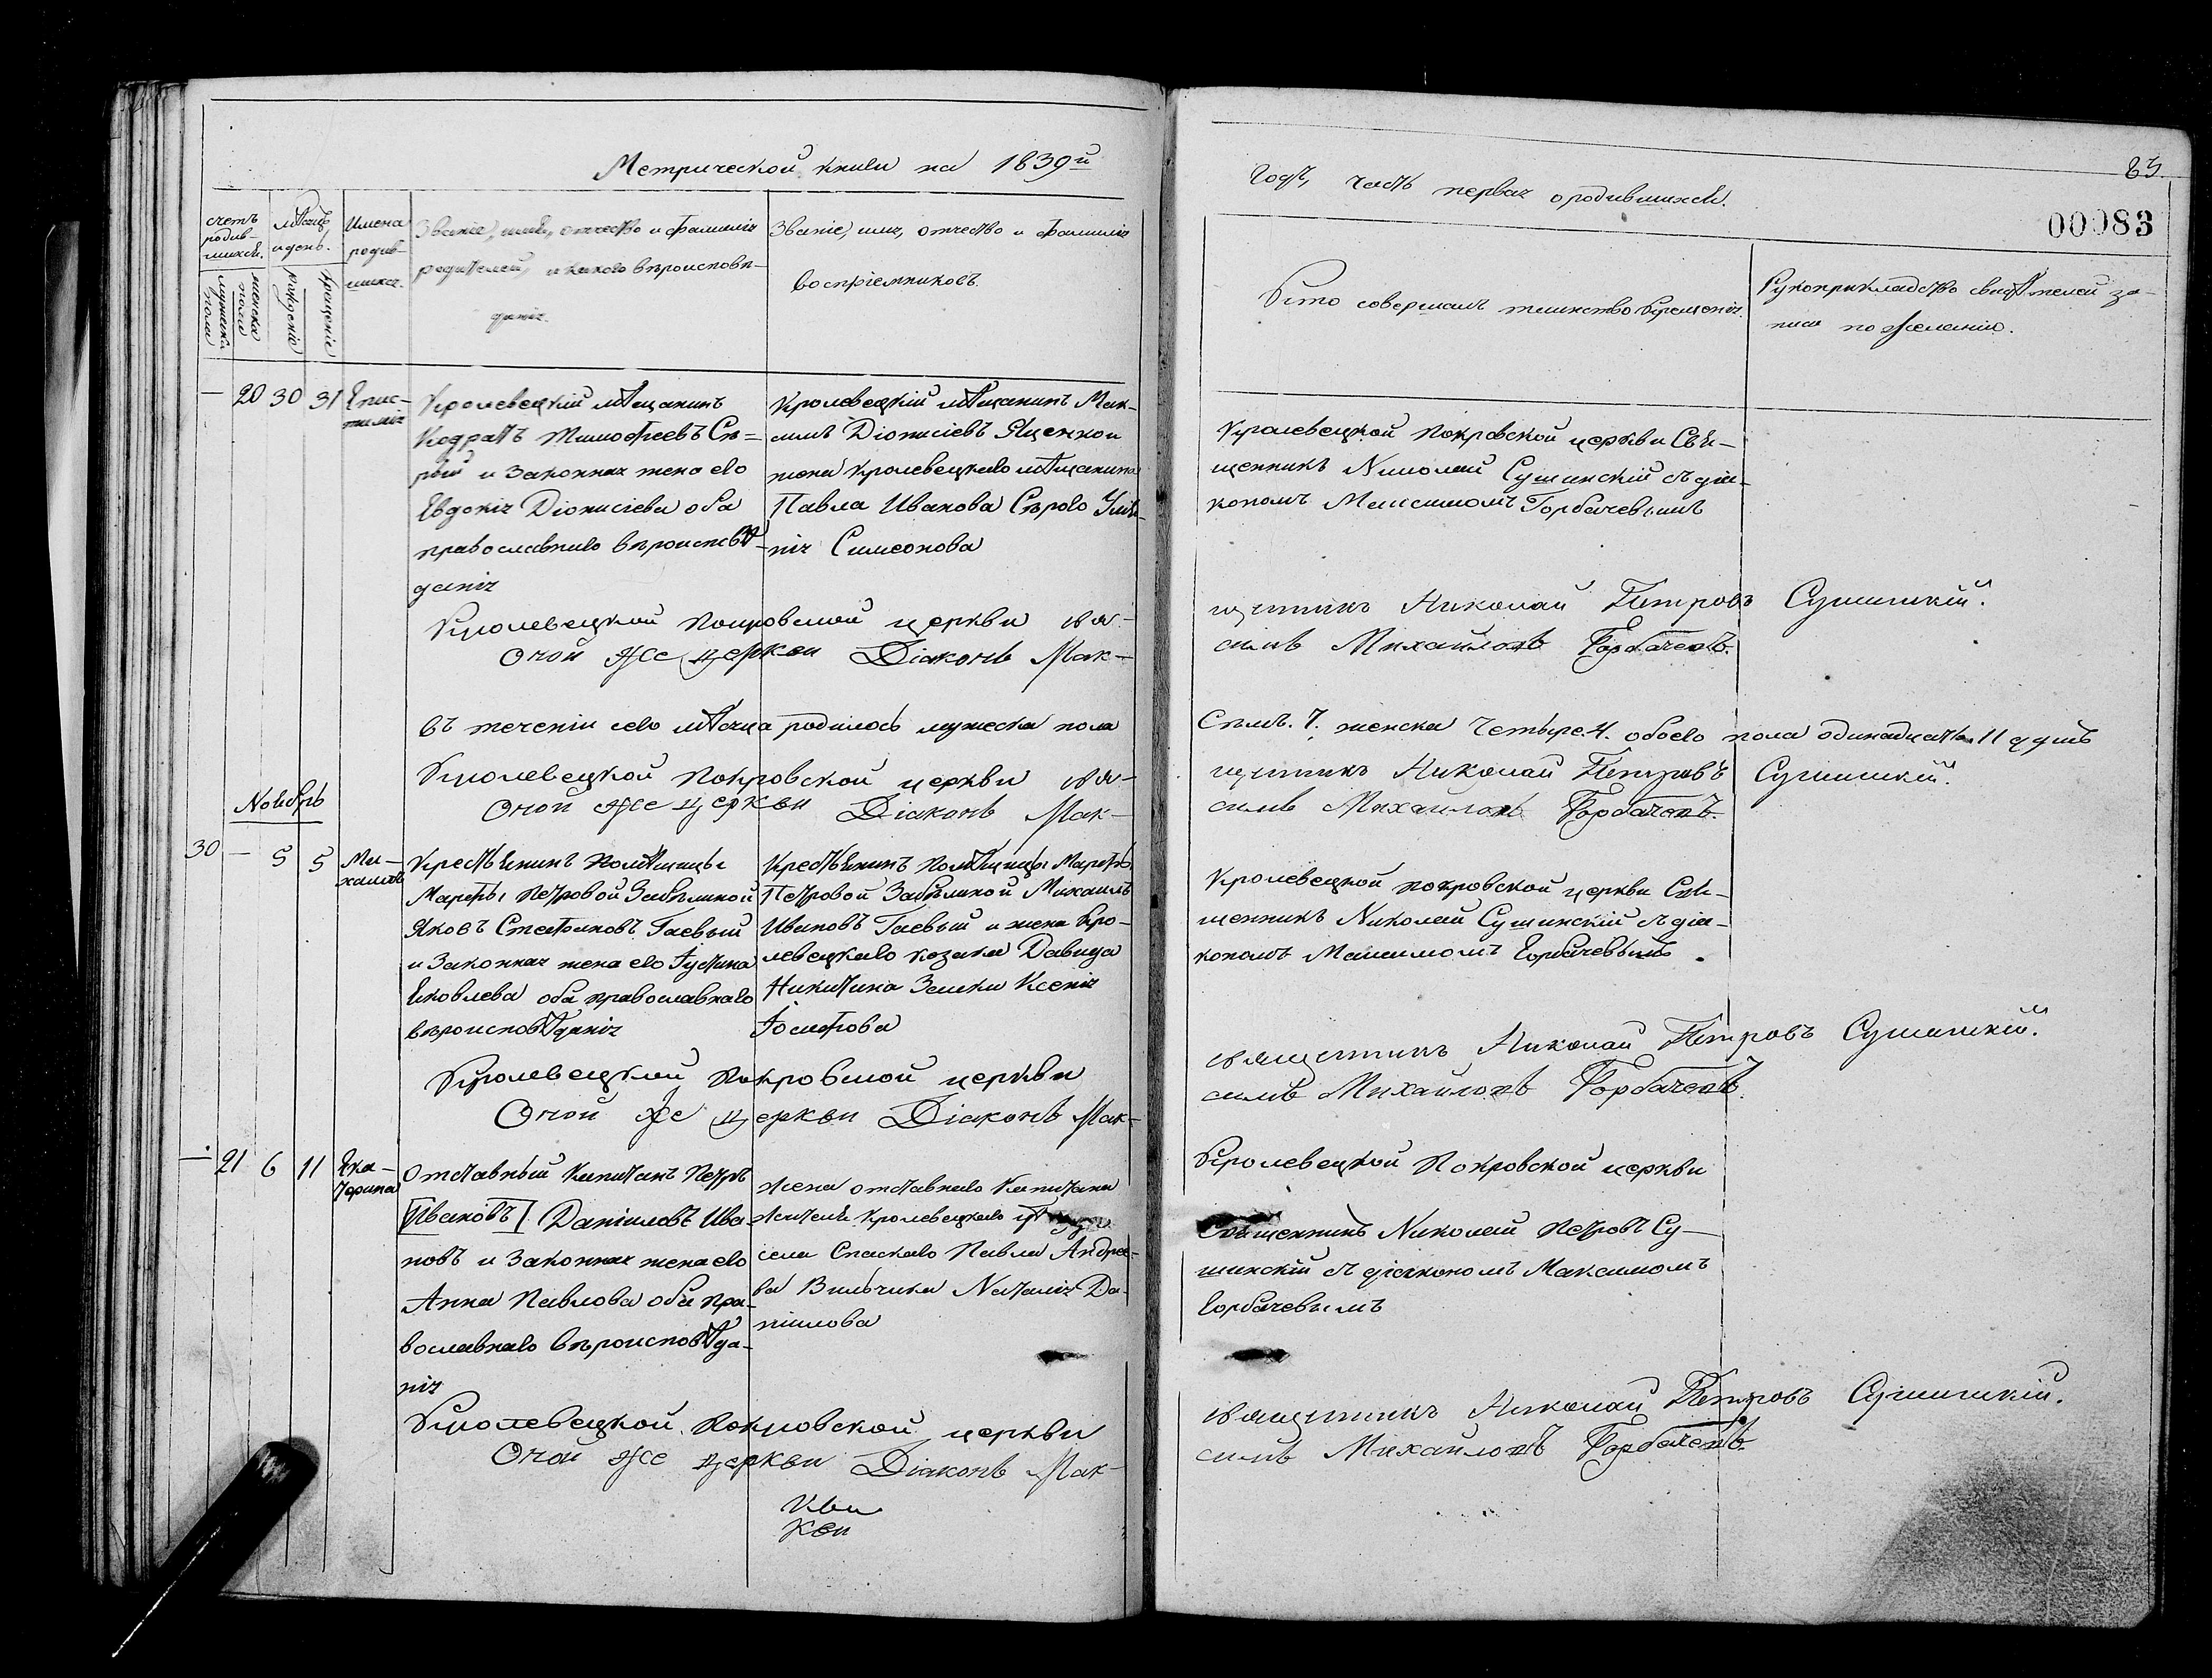 Метрической книги на 1839й
годъ, часть первая о родившихся.
83
00083
счетъ родив-шихся.
мужеска пола
женска пола
мѣсяцъ и день.
рожденіе
крещеніе
Имена родив-шихся.
Званіе, имя, отчество и фамилія
родителей, и какого вѣроисповѣ-
данія.
Званіе, имя, отчество и фамилія
воспріемниковъ.
Кто совершалъ таинство крещенія.
Рукоприкладство свидѣтелей за-
писи по желанію.
— 20 30 31
Епис-
тимія
Кролевецкій мѣщанинъ
Кодратъ Тимофеевъ Сѣ=
рый и законная жена его
Евдокія Діонисіева оба
православнаго вѣроисповѣ-
данія
Кролевецкій мѣщанинъ Мак-
симъ Діонисіевъ Яценко и
жена кролевецкаго мѣщанина
Павла Иванова Сѣрого Улья-
нія Симеонова
Кролевецкой покровской церкви Свя-
щенникъ Николай Сушинскій съ діа-
кономъ Максимомъ Горбачевымъ
Кролевецкой покровской церкви свя-
щенникъ Николай Петровъ Сушинскій.
Оной же церкви Діаконъ Мак-
симъ Михайловъ Горбачевъ.
въ теченіи сего мѣсяца родилось мужеска пола
Семь. 7. женска четыре 4. обоего пола одинадцать 11 душъ
Кролевецкой покровской церкви свя-
щенникъ Николай Петровъ Сушинскій.
Оной же церкви Діаконъ Мак-
симъ Михайловъ Горбачевъ.
Ноябрь
30 — 5 5
Ми-
хаилъ
Крестьянинъ помѣщицы
Марфы Петровой Забѣлиной
Яковъ Стефановъ Гаевый
и законная жена его Іустина
Яковлева оба православнаго
вѣроисповѣданія
Крестьянинъ помѣщицы Марфы
Петровой Забѣлиной Михаилъ
Ивановъ Гаевый и жена Кро-
левецкаго козака Давида
Никитина Земки Ксенія
Іосифова
Кролевецкой покровской церкви Свя-
щенникъ Николай Сушинскій съ діа-
кономъ Максимомъ Горбачевымъ.
Кролевецкой покровской церкви
священникъ Николай Петровъ Сушинскій.
Оной же церкви Діаконъ Мак-
симъ Михайловъ Горбачевъ.
— 21 6 11
Ека-
терина
Отставный капитанъ Петръ
Ивановъ Даніиловъ Ива
новъ и законная жена его
Анна Павлова оба пра-
вославнаго вѣроисповѣда-
нія
жена отставнаго капитана
жителя кролевецкаго
села Спаскаго Павла Андрее-
ва Вильчика Наталія Да-
ніилова
Кролевецкой Покровской церкви
Священникъ Николай Петровъ Су-
шинскій съ діакономъ Максимомъ
Горбачевымъ
Кролевецкой покровской церкви
священникъ Николай Петровъ Сушинскій.
Оной же церкви Діаконъ Мак-
симъ Михайловъ Горбачевъ.